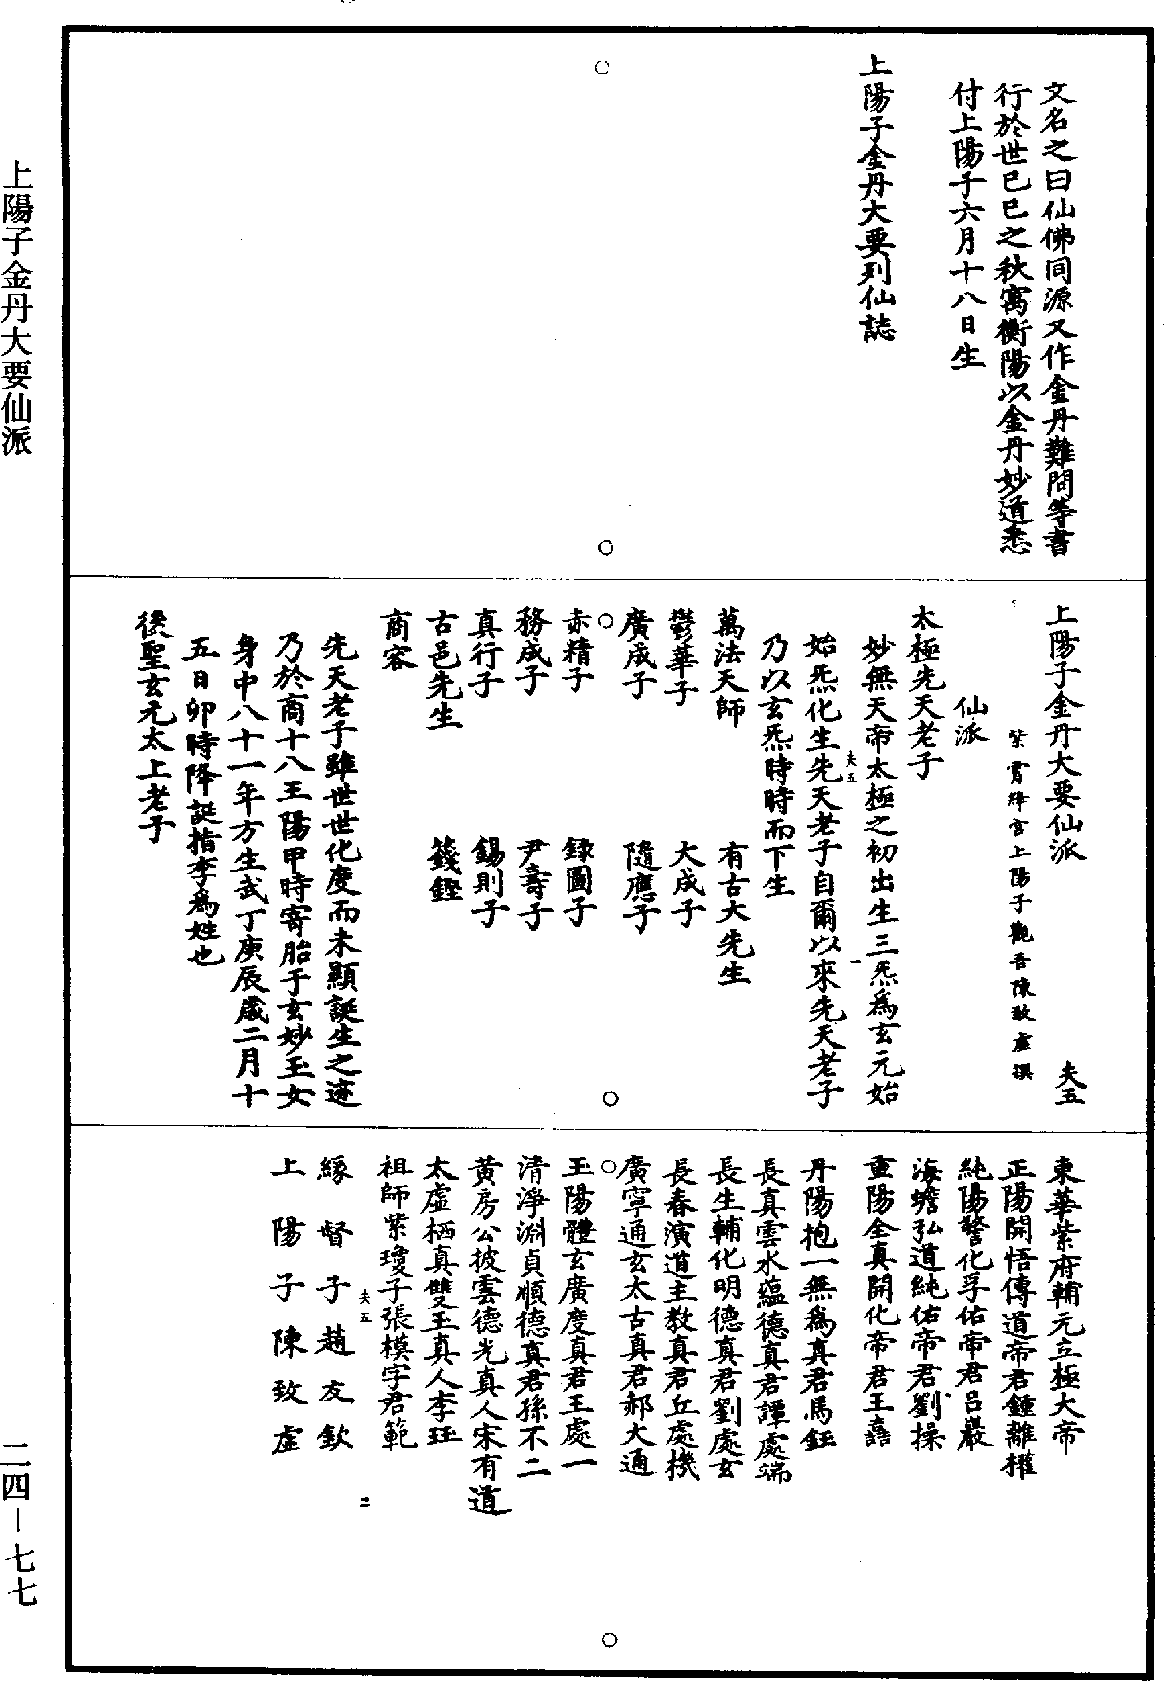 文名之曰仙佛同源又作金丹難問等書
行於世已巳之秋寓衡陽以金丹妙道悉
付上陽子六月十八日生
上陽子金丹大要列仙誌
上陽子金丹大要仙派 夫五
紫霄絳宮上陽子觀吾陳致虛撰
仙派
太極先天老子
妙無天帝太極之初出生三炁為玄元始
始炁化生先天老子自爾以來先天老子
乃以玄炁時時而下生
夫五
萬法天師 有古大先生
鬱華子 大成子
廣成子 隨應子
赤精子 錄圖子
務成子 尹壽子
真行子 錫則子
古邑先生 籛鏗
商容
先天老子雖世世化度而未顯誕生之迹
乃於商十八王陽甲時寄胎于玄妙玉女
身中八十一年方生武丁庚辰歲二月十
五日卯時降誕指李為姓也
後聖玄元太上老子
東華紫府輔元立極大帝
正陽開悟傳道帝君鍾離權
純陽警化孚佑帝君呂巖
海蟾弘道純佑帝君劉操
重陽全真開化帝君王嚞
丹陽抱一無為真君馬鈺
長真雲水蘊德真君譚處端
長生輔化明德真君劉處玄
長春演道主教真君丘處機
廣寧通玄太古真君郝大通
玉陽體玄廣度真君王處一
清淨淵貞順德真君孫不二
黃房公披雲德光真人宋有道
太虛栖真雙玉真人李珏
祖師紫瓊子張模字君範
夫五 二
緣督子趙友欽
上陽子陳致虛
上陽子金丹大要仙派
二四－七七